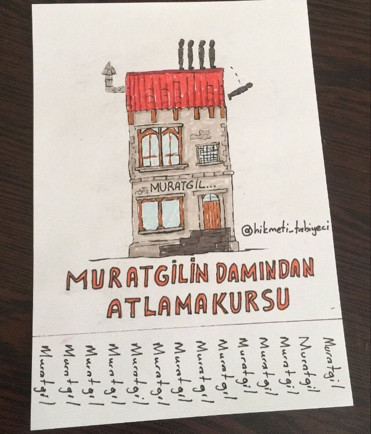 MURATGİL...
@hikmeti_tabiyeci
MURATGİLİN DAMINDAN
ATLAMA KURSU
Muratgil
Muratgil
Muratgil
Muratgil
Muratgil
Muratgil
Muratgil
Muratgil
Muratgil
Muratgil
Muratgil
Muratgil
Muratgil